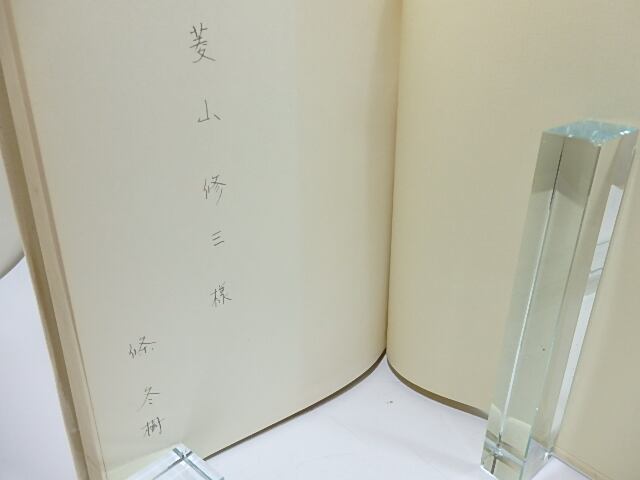 菱山修三様
條冬樹